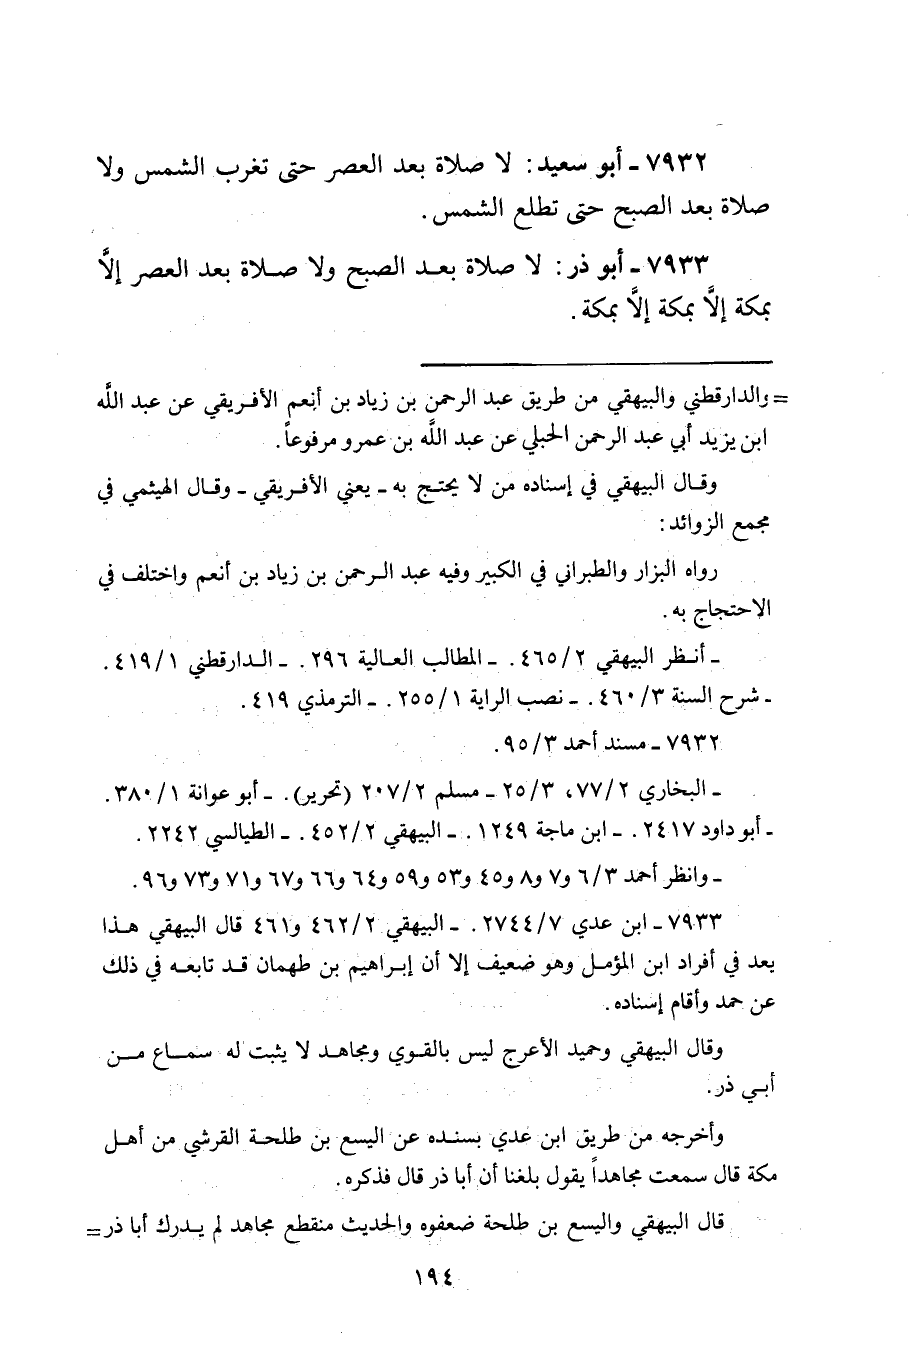 ٧٩٣٢ - أبو سعيد: لا صلاة بعد العصر حتى تغرب الشمس ولا
صلاة بعد الصبح حتى تطلع الشمس.
٧٩٣٣ - أبو ذر: لا صلاة بعد الصبح ولا صلاة بعد العصر إلاَّ
بمكة إلاَّ بمكة إلاَّ بمكة.
= والدارقطني والبيهقي من طريق عبد الرحمن بن زياد بن أنعم الأفريقي عن عبد اللَّه
ابن يزيد أبي عبد الرحمن الحبلي عن عبد اللَّه بن عمرو مرفوعاً.
وقال البيهقي في إسناده من لا يحتج به - يعني الأفريقي - وقال الهيثمي في
مجمع الزوائد:
رواه البزار والطبراني في الكبير وفيه عبد الرحمن بن زياد بن أنعم واختلف في
الاحتجاج به.
- أنظر البيهقي ٤٦٥/٢. - المطالب العالية ٢٩٦. - الدارقطني ٤١٩/١.
- شرح السنة ٤٦٠/٣. - نصب الراية ٢٥٥/١. - الترمذي ٤١٩.
٧٩٣٢ - مسند أحمد ٩٥/٣.
- البخاري ٧٧/٢، ٢٥/٣ - مسلم ٢٠٧/٢ (تحرير). - أبو عوانة ٣٨٠/١.
- أبو داود ٢٤١٧. - ابن ماجة ١٢٤٩. - البيهقي ٤٥٢/٢. - الطيالسي ٢٢٤٢.
- وانظر أحمد ٦/٣ و٧ و٨ و٤٥ و٥٣ و٥٩ و٦٤ و٦٦ و٦٧ و٧١ و٧٣ و٩٦.
٧٩٣٣ - ابن عدي ٢٧٤٤/٧. - البيهقي ٤٦٢/٢ و٤٦١ قال البيهقي هذا
يعد في أفراد ابن المؤمل وهو ضعيف إلا أن إبراهيم بن طهمان قد تابعه في ذلك
عن حمد وأقام إسناده.
وقال البيهقي وحميد الأعرج ليس بالقوي ومجاهد لا يثبت له سماع من
أبي ذر.
وأخرجه من طريق ابن عدي بسنده عن اليسع بن طلحة القرشي من أهل
مكة قال سمعت مجاهداً يقول بلغنا أن أبا ذر قال فذكره.
قال البيهقي واليسع بن طلحة ضعفوه والحديث منقطع مجاهد لم يدرك أبا ذر =
١٩٤